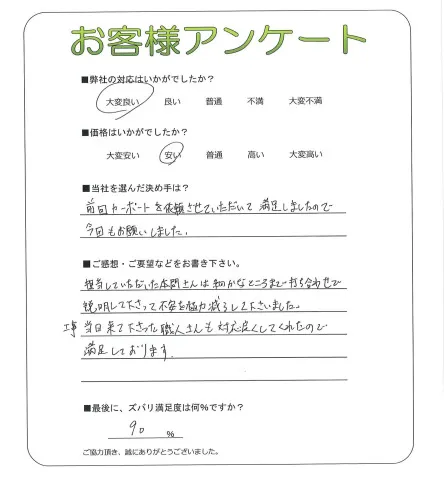 お客様アンケート
■弊社の対応はいかがでしたか?
大変良い 良い 普通 不満 大変不満
■価格はいかがでしたか?
大変安い 安い 普通 高い 大変高い
■当社を選んだ決め手は?
前回カーポートを依頼させていただいて満足しましたので
今回もお願いしました。
■ご感想・ご要望などをお書き下さい。
担当していただいた本間さんは細かなところまで打ち合わせで
説明して下さって不安を極力減らして下さいました。
工事当日来て下さった職人さんも対応良くしてくれたので
満足しております。
■最後に、ズバリ満足度は何%ですか?
90 %
ご協力頂き、誠にありがとうございました。